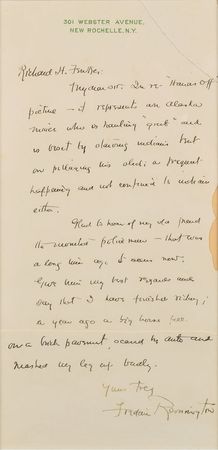 301 WEBSTER AVENUE,
NEW ROCHELLE, N.Y.
Richard H.
My dear sir. In re "Hands Off"
picture — it represents an Alaska
miner who is hauling "grub" and
is beset by starving indians bent
on pillaging his sled; a frequent
happening and not confined to indians
either.
Glad to hear of my old friend
the mounted police man — that was
a long time ago it seems now.
Give him my best regards and
say that I have finished riding;
a year ago a big horse fell
on a brick pavement, scared by auto and
mashed my leg up badly.
Yours truly
Frederic Remington